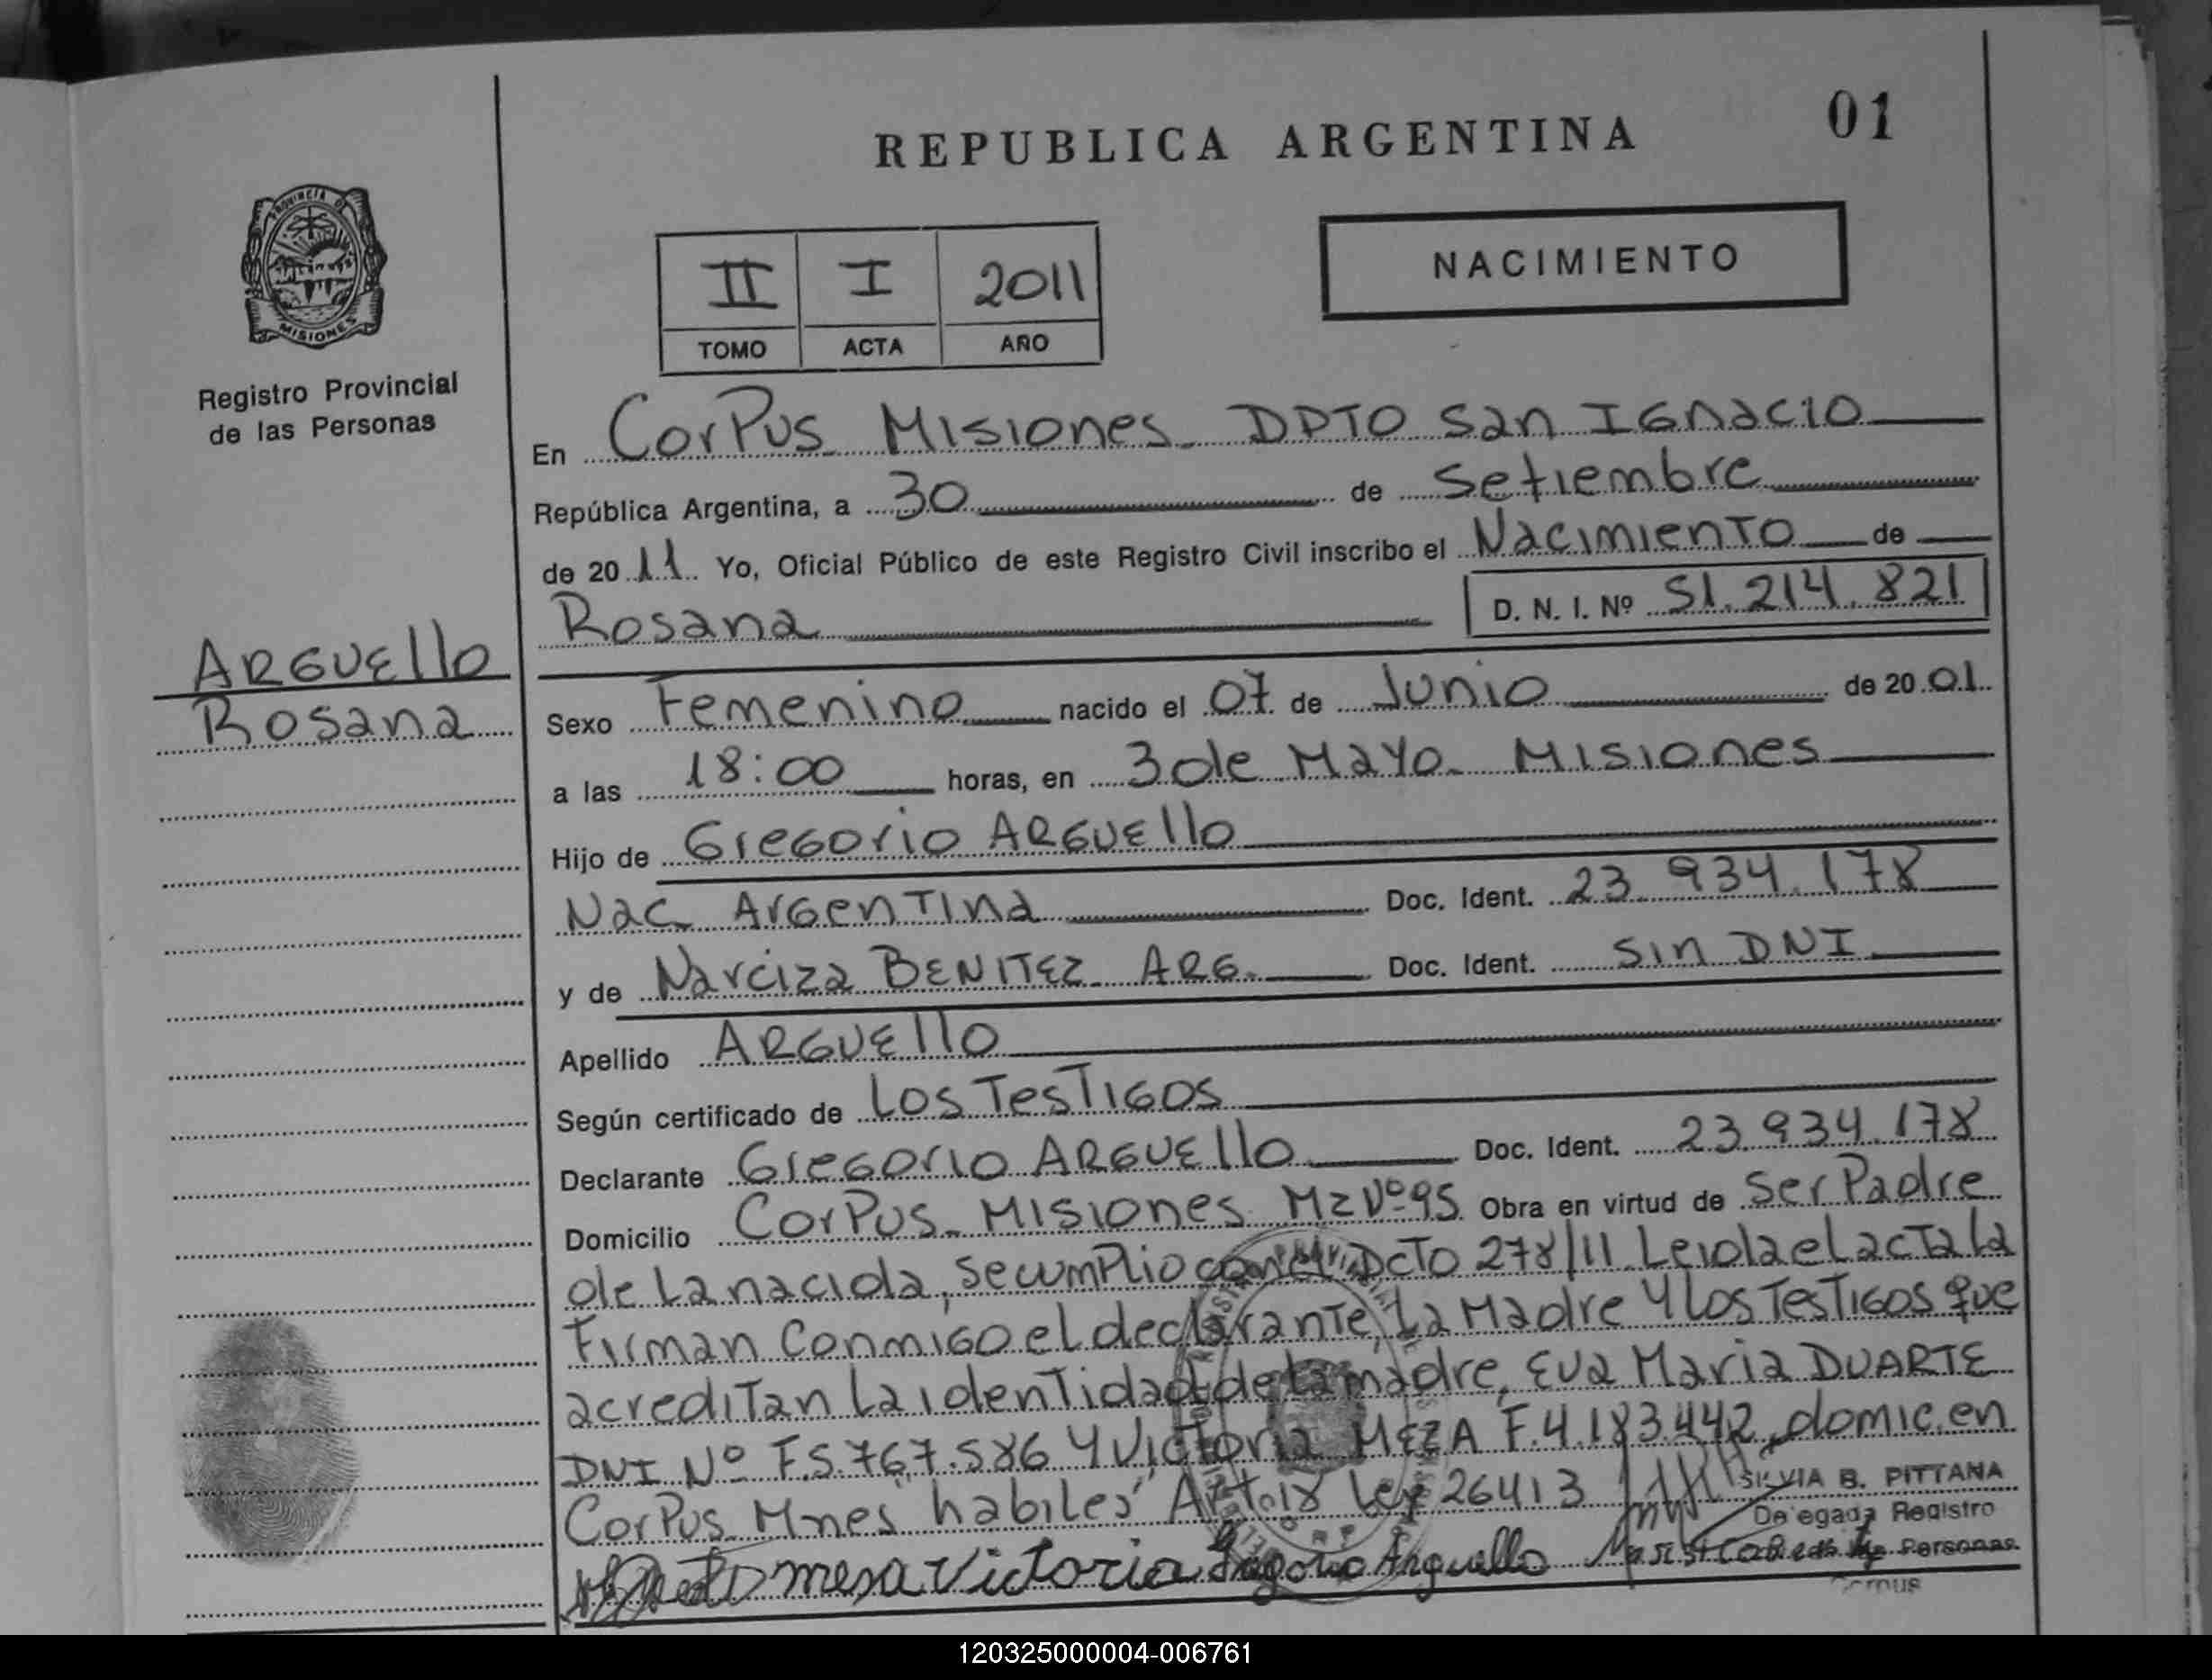 REPUBLICA ARGENTINA
01
PROVINCIA DE
MISIONES
Registro Provincial
de las Personas
II I 2011
TOMO ACTA AÑO
NACIMIENTO
En CorPus Misiones DPTO San Ignacio
República Argentina, a 30 de Setiembre
de 2011 Yo, Oficial Público de este Registro Civil inscribo el Nacimiento de
Rosana
D. N. I. Nº 51.214.821
ARGUELLO
Rosana
Sexo Femenino nacido el 07 de Junio de 2001
a las 18:00 horas, en 3 de Mayo Misiones
Hijo de Gregorio ARGUELLO
Nac Argentina Doc. Ident. 23.934.178
y de Narciza BENITEZ ARG. Doc. Ident. Sin DNI
Apellido ARGUELLO
Según certificado de Los Testigos
Declarante Gregorio ARGUELLO Doc. Ident. 23.934.178
Domicilio CorPus Misiones Mz Nº 95 Obra en virtud de Ser Padre
de La nacida, se cumplio con el Dcto 278/11. Leida el acta la
Firman conmigo el declarante, La Madre y los Testigos que
acreditan la identidad de la madre, Eva Maria DUARTE
DNI Nº F.5.767.586 y Victoria MEZA F.4.183.442, domic. en
CorPus Mnes habiles Art. 18 Ley 26413
SILVIA B. PITTANA
Delegada Registro
de las Personas
Corpus
mesa Victoria Gregorio Arguello
120325000004-006761